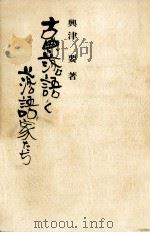 興津 要 著
古典落語と
落語家たち